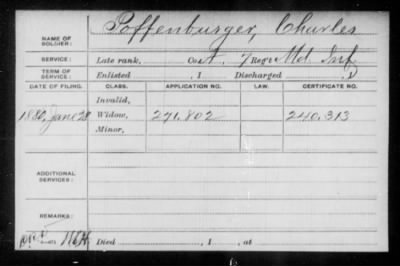 Poffenburger, Charles
NAME OF SOLDIER:
SERVICE: Late rank, Co. A, 7 Reg't Md. Inf.
TERM OF SERVICE: Enlisted , 1 Discharged , 1
DATE OF FILING. CLASS. APPLICATION NO. LAW. CERTIFICATE NO.
Invalid,
1880, June 28 Widow, 271.802 240.313
Minor,
ADDITIONAL SERVICES:
REMARKS:
Died , 1 , at